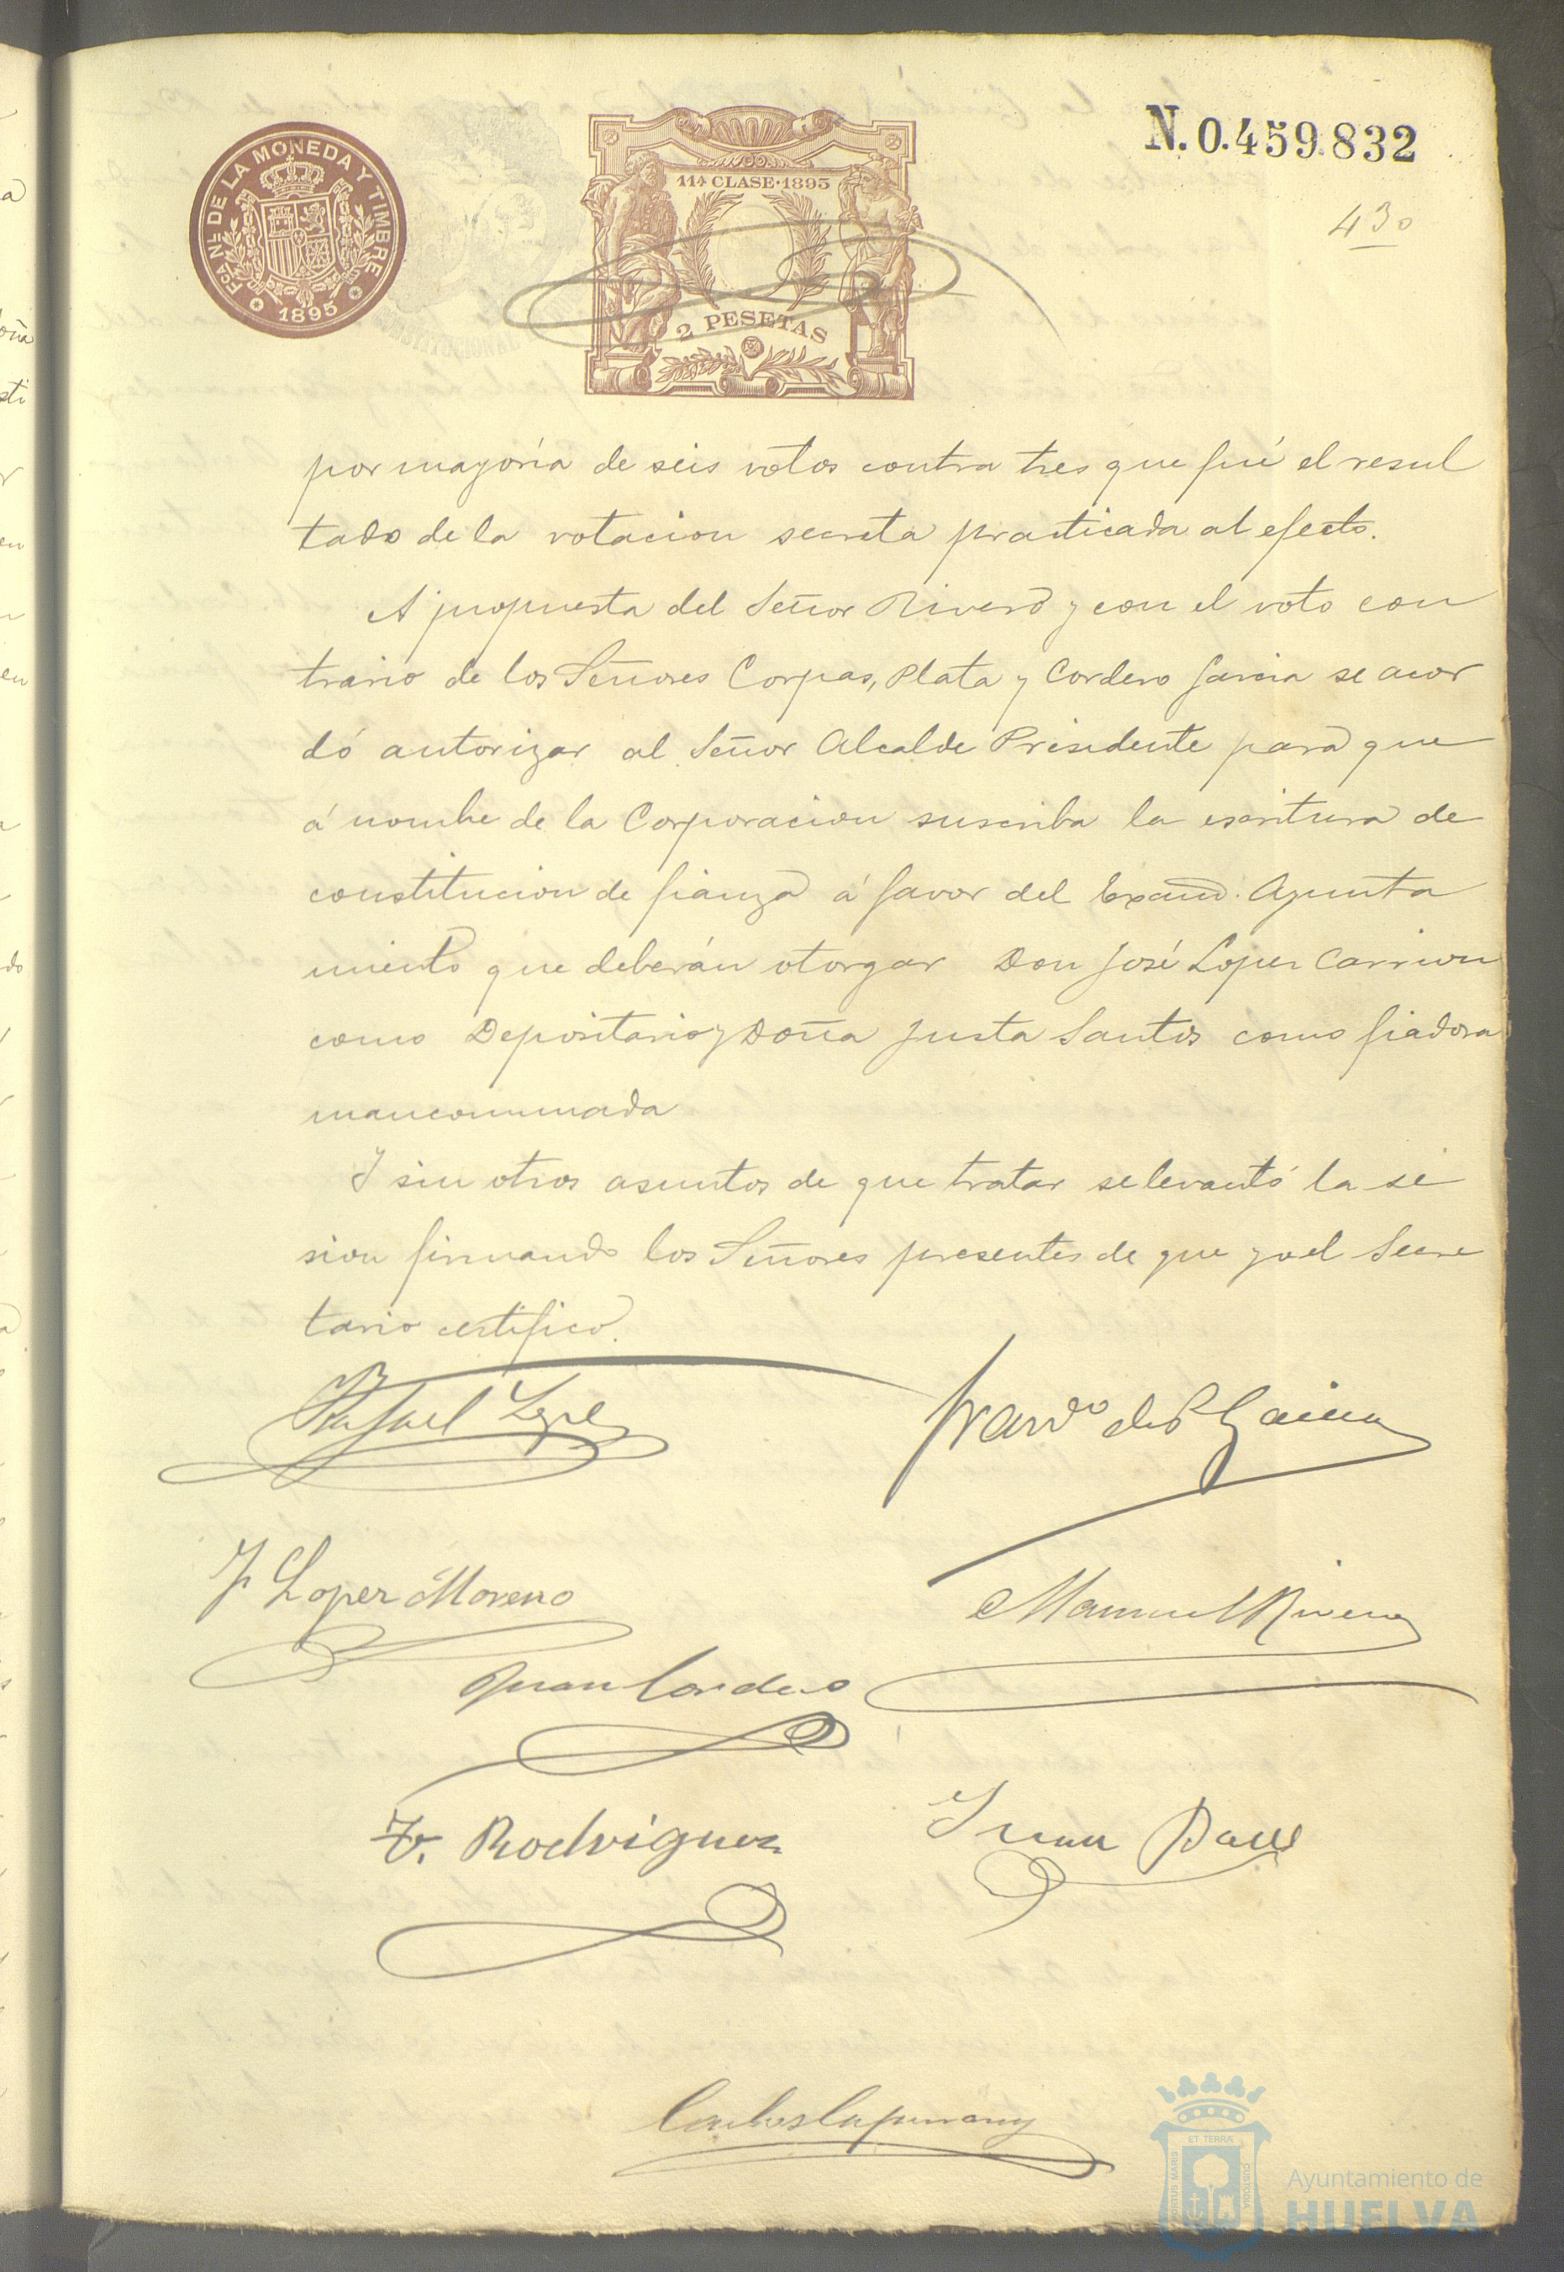 FCA NL DE LA MONEDA Y TIMBRE
1895
11ª CLASE·1895
2 PESETAS
N. 0.459.832
430
por mayoría de seis votos contra tres que fué el resul
tado de la votacion secreta practicada al efecto.
A propuesta del Señor Rivero y con el voto con
trario de los Señores Corpas, Plata y Cordero Garcia se acor
dó autorizar al Señor Alcalde Presidente para que
á nombre de la Corporacion suscriba la escritura de
constitucion de fianza á favor del Excmo. Ayunta
miento que deberán otorgar Don José Lopez Carrion
como Depositario y Doña Justa Santos como fiadora
mancomunada
Y sin otros asuntos de que tratar se levantó la se
sion firmando los Señores presentes de que yo el Secre
tario certifico.
Rafael
Garcia
J Lopez Moreno
Manuel Rivero
Juan Cordero
F. Rodriguez
Juan
Carlos
PORTUS MARIS ET TERRÆ CUSTODIA
Ayuntamiento de
HUELVA